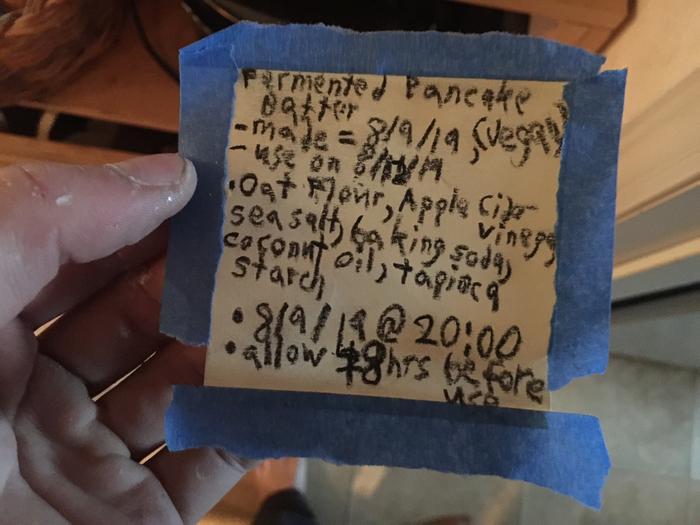 Fermented Pancake
Batter
- made = 8/9/19 (vegan)
- use on 8/11/19
• Oat Flour, Apple Cider
vinegar
sea salt, baking soda,
coconut oil, tapioca
starch
• 8/9/19 @ 20:00
• allow 48hrs before
use